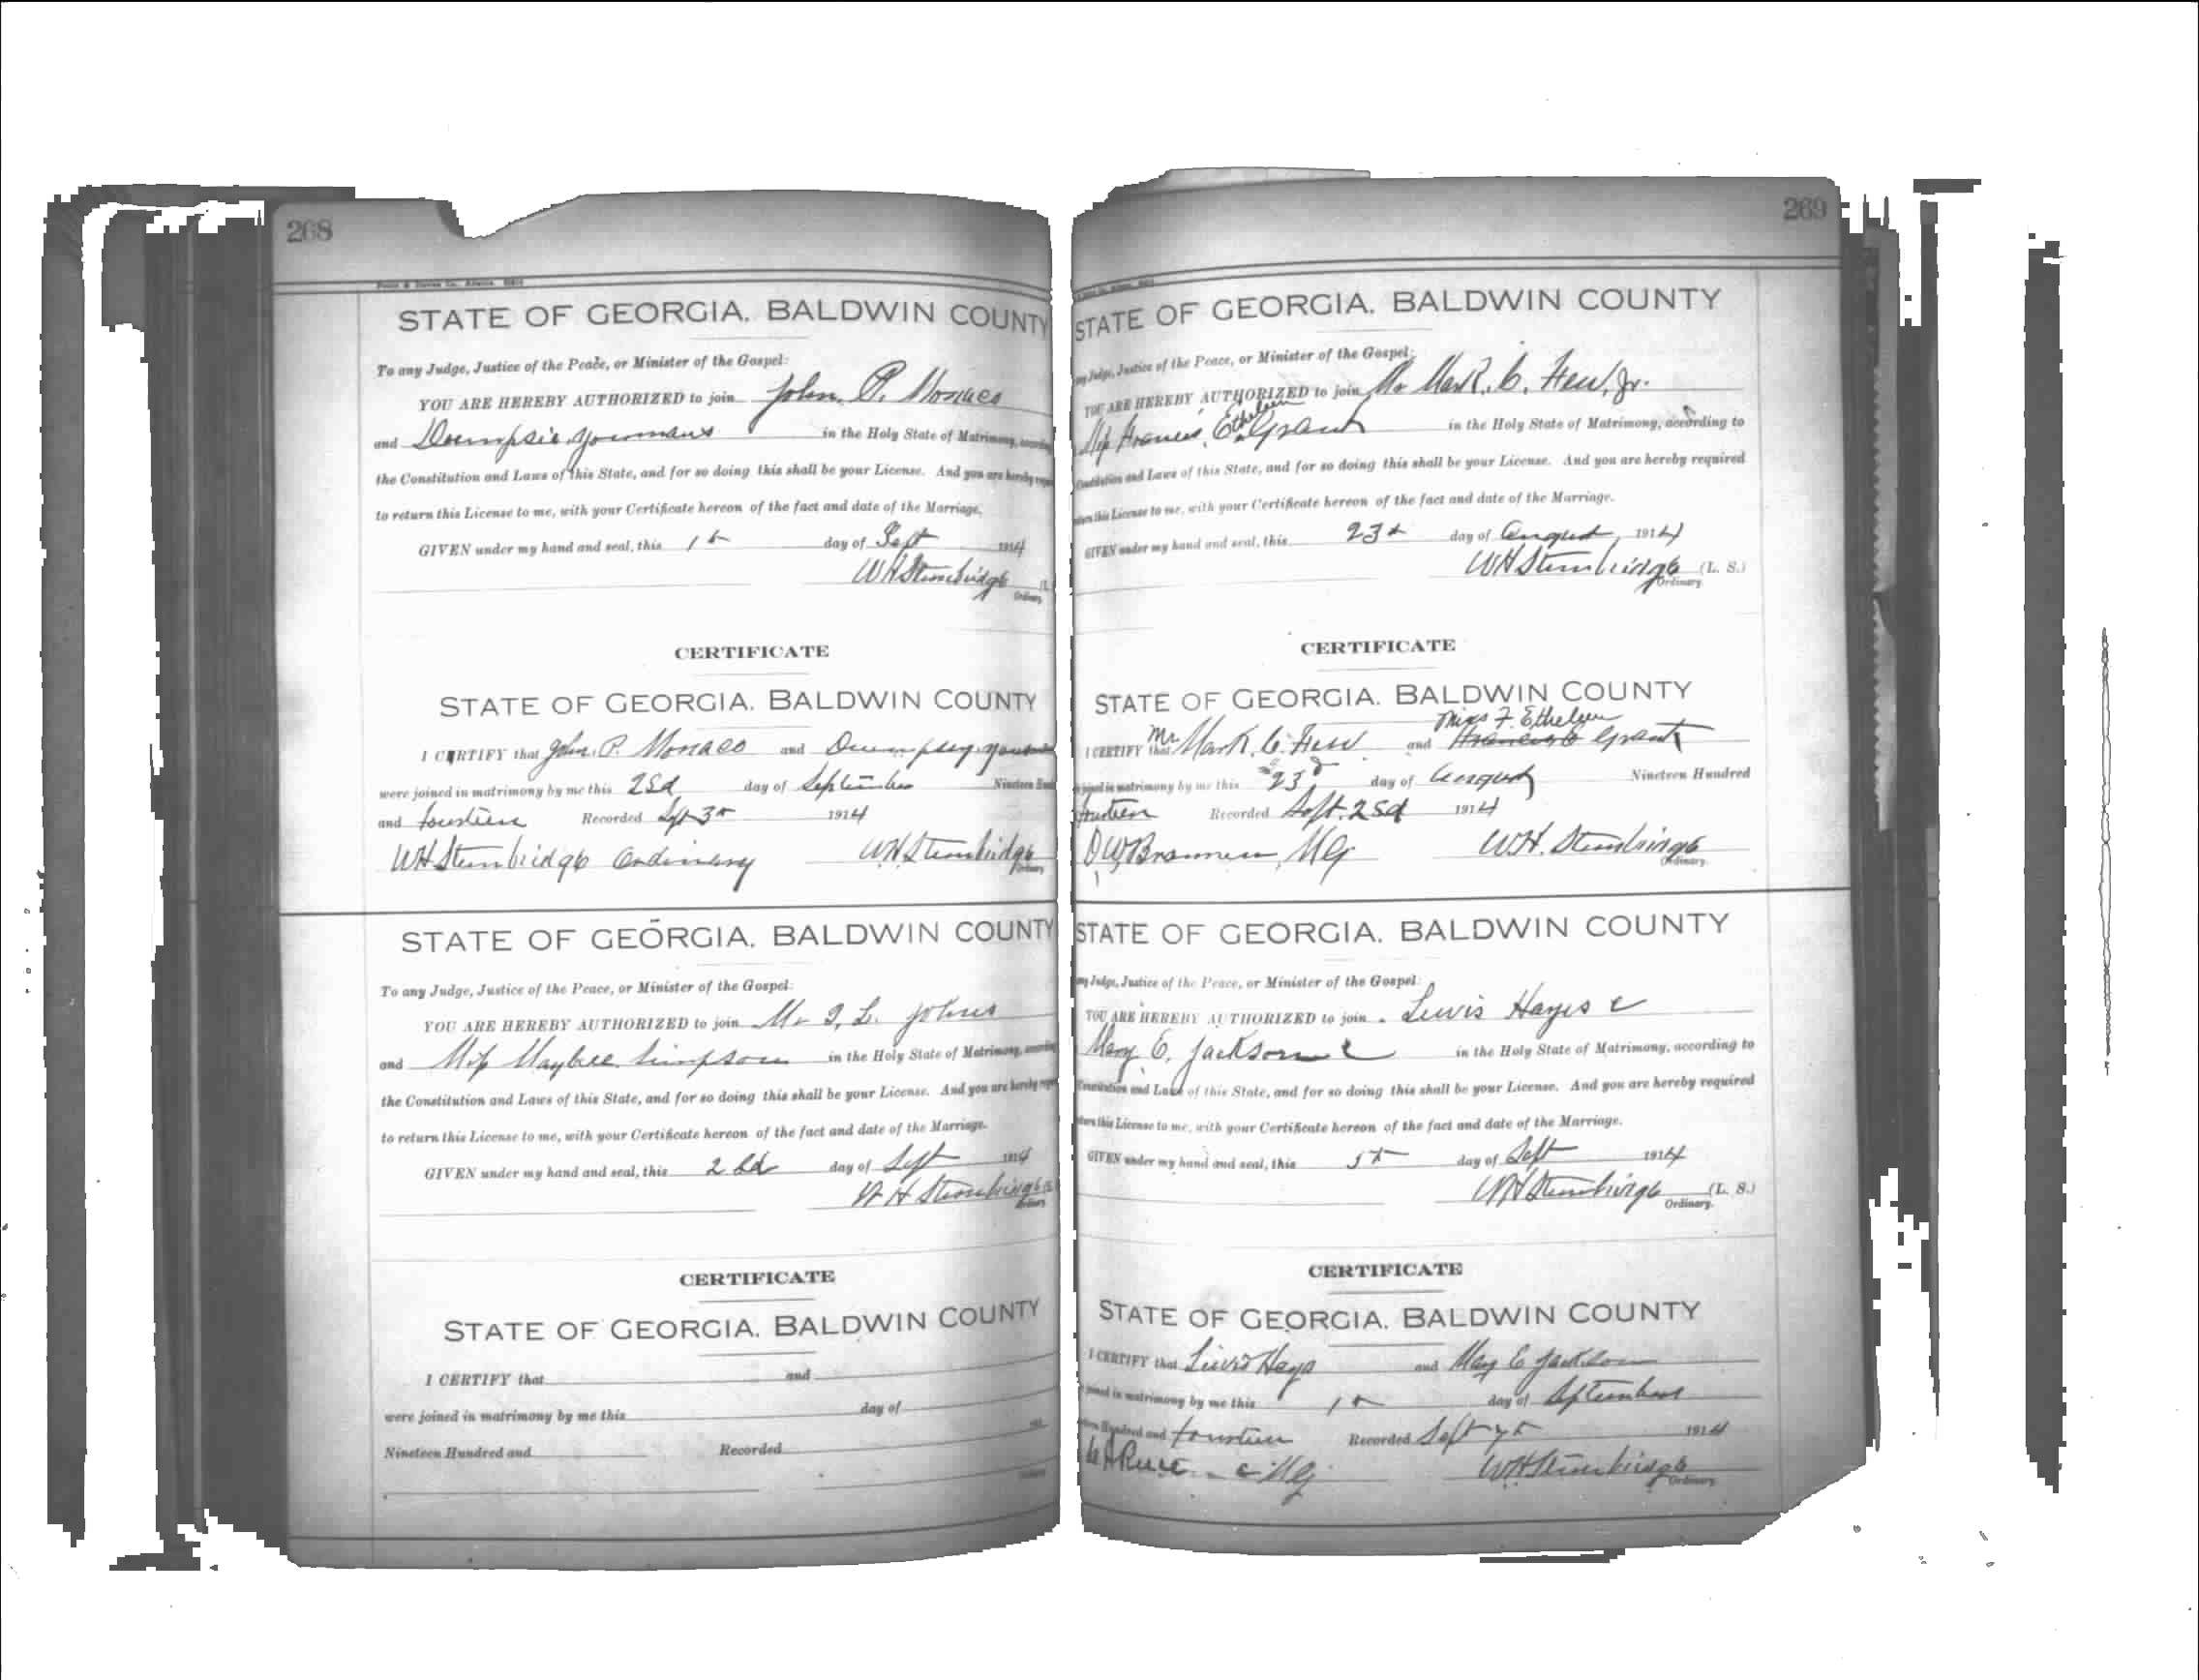 268
STATE OF GEORGIA. BALDWIN COUNTY
To any Judge, Justice of the Peace, or Minister of the Gospel:
YOU ARE HEREBY AUTHORIZED to join John. P. Monaco
and Dumpsie Youmans in the Holy State of Matrimony,
the Constitution and Laws of this State, and for so doing this shall be your License. And you are hereby
to return this License to me, with your Certificate hereon of the fact and date of the Marriage.
GIVEN under my hand and seal, this 1st day of Sept 1914
WHStembridge
Ordinary
CERTIFICATE
STATE OF GEORGIA. BALDWIN COUNTY
I CERTIFY that John. P. Monaco and Dumpsey
were joined in matrimony by me this 2nd day of September Nineteen
and fourteen Recorded Sept 3rd 1914
WHStembridge Ordinary W.H.Stembridge
Ordinary
STATE OF GEORGIA. BALDWIN COUNTY
To any Judge, Justice of the Peace, or Minister of the Gospel:
YOU ARE HEREBY AUTHORIZED to join Mr L. Johns
and Miss Maybell Simpson in the Holy State of Matrimony,
the Constitution and Laws of this State, and for so doing this shall be your License. And you are hereby
to return this License to me, with your Certificate hereon of the fact and date of the Marriage.
GIVEN under my hand and seal, this 2nd day of Sept 1914
W H Stembridge
Ordinary
CERTIFICATE
STATE OF GEORGIA. BALDWIN COUNTY
I CERTIFY that and
were joined in matrimony by me this day of
Nineteen Hundred and Recorded
269
STATE OF GEORGIA. BALDWIN COUNTY
Judge, Justice of the Peace, or Minister of the Gospel:
YOU ARE HEREBY AUTHORIZED to join Mr Mark. C. Few, Jr.
Etheleen
Miss Frances, E. Grant in the Holy State of Matrimony, according to
and Laws of this State, and for so doing this shall be your License. And you are hereby required
this License to me, with your Certificate hereon of the fact and date of the Marriage.
GIVEN under my hand and seal, this 23d day of August, 1914
WHStembridge (L. S.)
Ordinary.
CERTIFICATE
STATE OF GEORGIA. BALDWIN COUNTY
Mr Miss F. Ethelyn
I CERTIFY that Mark. C. Few and Grant
in matrimony by me this 23d day of August Nineteen Hundred
fourteen Recorded Sept. 2nd 1914
M.G. W.H. Stembridge
Ordinary.
STATE OF GEORGIA. BALDWIN COUNTY
Judge, Justice of the Peace, or Minister of the Gospel:
YOU ARE HEREBY AUTHORIZED to join Lewis Hayes c
Mary E. Jackson c in the Holy State of Matrimony, according to
and Laws of this State, and for so doing this shall be your License. And you are hereby required
this License to me, with your Certificate hereon of the fact and date of the Marriage.
GIVEN under my hand and seal, this 5th day of Sept 1914
WHStembridge (L. S.)
Ordinary.
CERTIFICATE
STATE OF GEORGIA. BALDWIN COUNTY
I CERTIFY that Lewis Hays and Mary E Jackson
in matrimony by me this day of September
Hundred and fourteen Recorded Sept 7th 1914
WHStembridge
Ordinary.